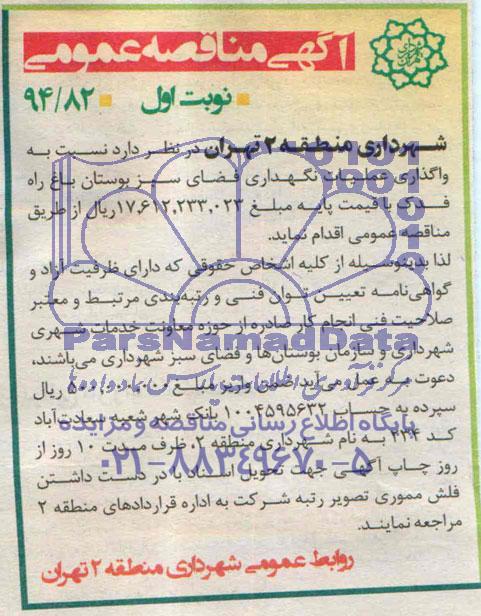 آگهی مناقصه عمومی
نوبت اول ۹۴/۸۲
شهرداری منطقه ۲ تهران در نظر دارد نسبت به
واگذاری عملیات نگهداری فضای سبز بوستان باغ راه
فدک با قیمت پایه مبلغ ۱۷,۶۱۲,۲۳۳,۰۲۳ ریال از طریق
مناقصه عمومی اقدام نماید.
لذا بدینوسیله از کلیه اشخاص حقوقی که دارای ظرفیت آزاد و
گواهی‌نامه تعیین توان فنی و رتبه‌بندی مرتبط و معتبر
صلاحیت فنی انجام کار صادره از حوزه معاونت خدمات شهری
ParsNamadData
شهرداری و سازمان بوستان‌ها و فضای سبز شهرداری می‌باشند،
دعوت به عمل می‌آید ضمن واریز مبلغ ریال
سپرده به حساب ۱۰۰۴۵۹۵۶۳۲ بانک شهر شعبه سعادت‌آباد
پایگاه اطلاع رسانی مناقصه و مزایده
کد ۲۳۴ به نام شهرداری منطقه ۲، ظرف مدت ۱۰ روز از
روز چاپ آگهی جهت تحویل اسناد با در دست داشتن
۰۲۱-۸۸۳۴۹۶۷۰-۵
فلش مموری تصویر رتبه شرکت به اداره قراردادهای منطقه ۲
مراجعه نمایند.
روابط عمومی شهرداری منطقه ۲ تهران